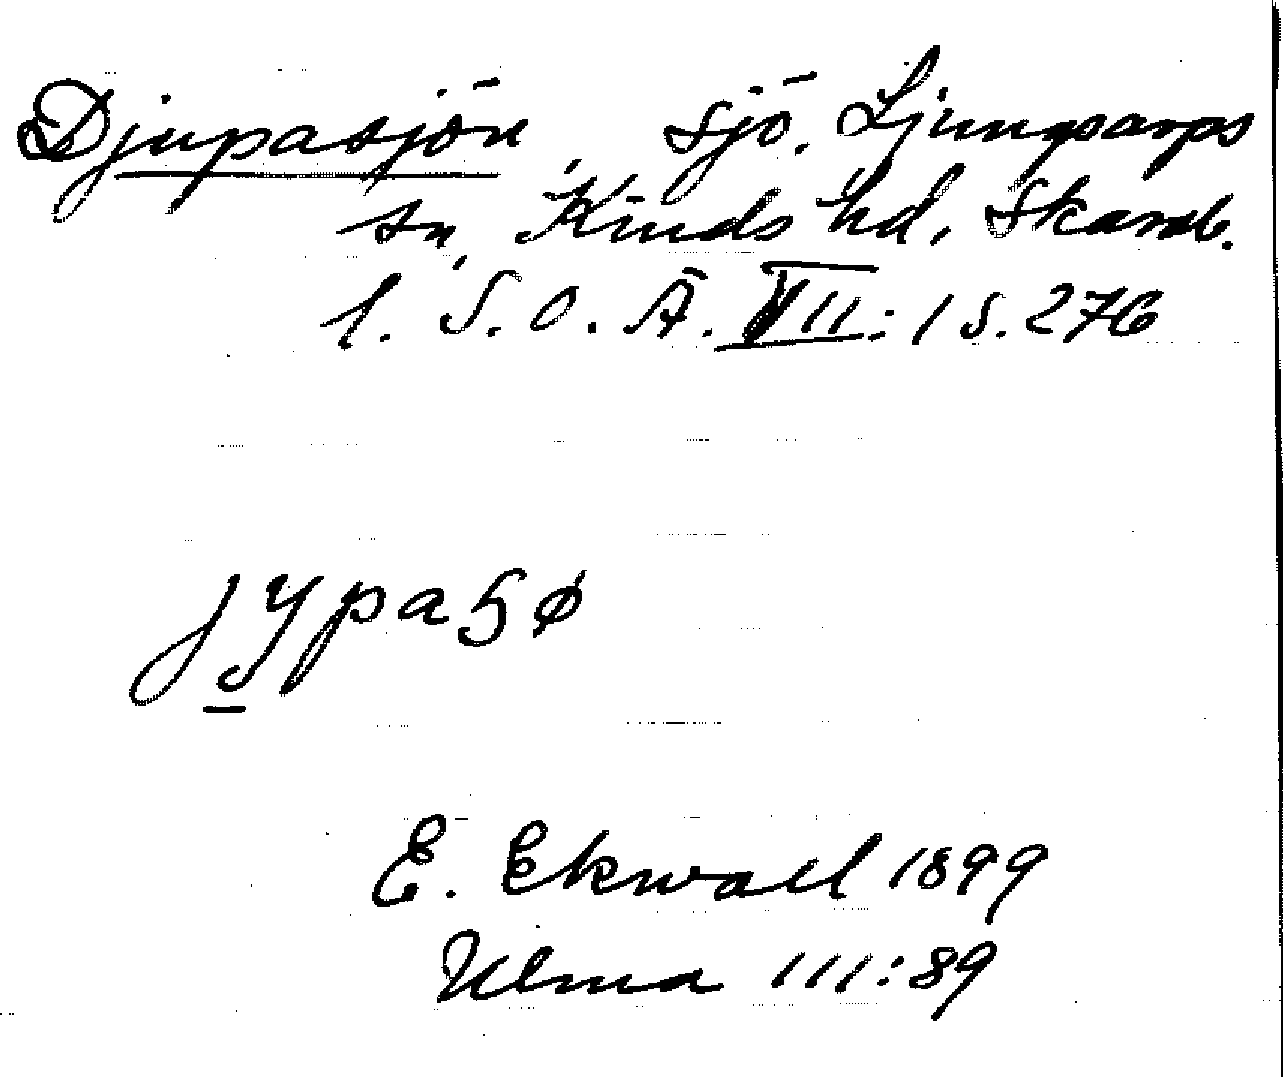 Djupasjön, sjö. Ljungsarps
sn, Kinds hd, Skarab.
l. S. O. Ä. VII:1 s. 276
jypaʂø
E. Ekwall 1899
Ulma 111:89